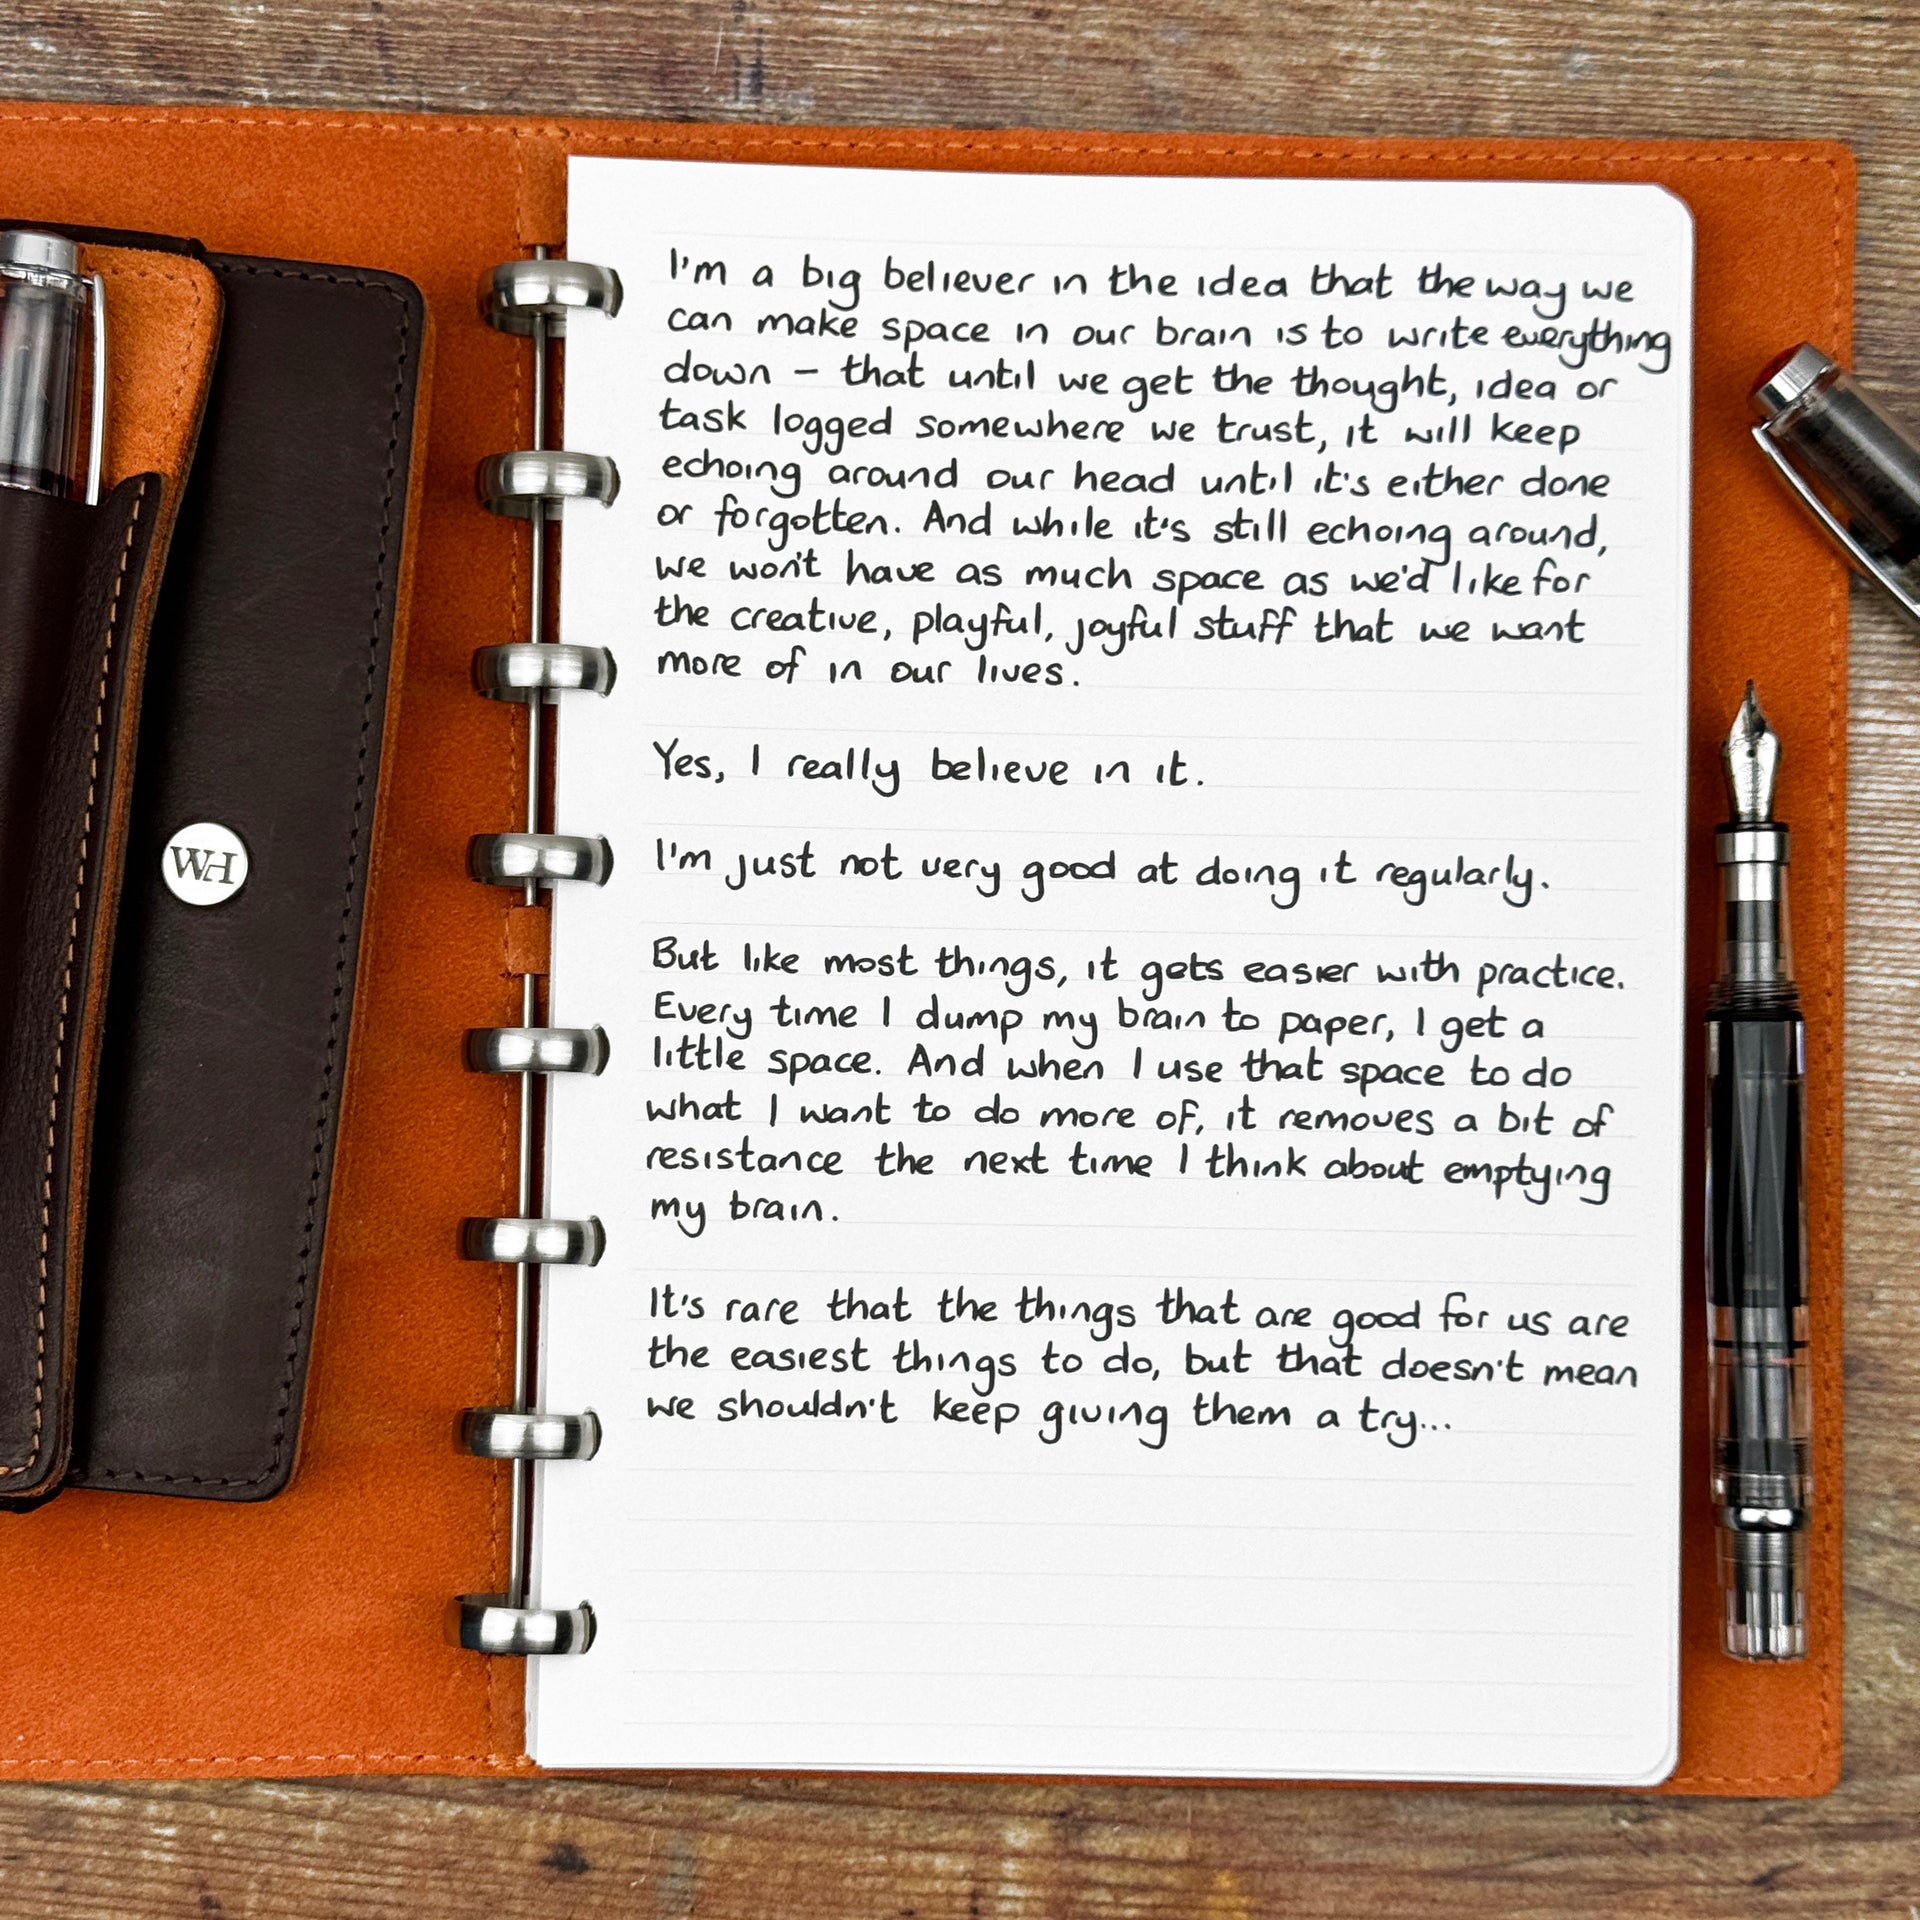 I'm a big believer in the idea that the way we
can make space in our brain is to write everything
down – that until we get the thought, idea or
task logged somewhere we trust, it will keep
echoing around our head until it's either done
or forgotten. And while it's still echoing around,
we won't have as much space as we'd like for
the creative, playful, joyful stuff that we want
more of in our lives.
Yes, I really believe in it.
I'm just not very good at doing it regularly.
But like most things, it gets easier with practice.
Every time I dump my brain to paper, I get a
little space. And when I use that space to do
what I want to do more of, it removes a bit of
resistance the next time I think about emptying
my brain.
It's rare that the things that are good for us are
the easiest things to do, but that doesn't mean
we shouldn't keep giving them a try...
WH